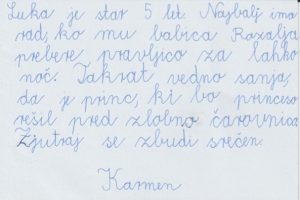 Luka je star 5 let. Najbolj ima
rad, ko mu babica Rozalja
prebere pravljico za lahko
noč. Takrat vedno sanja,
da je princ, ki bo princeso
rešil pred zlobno čarovnico.
Zjutraj se zbudi srečen.
Karmen